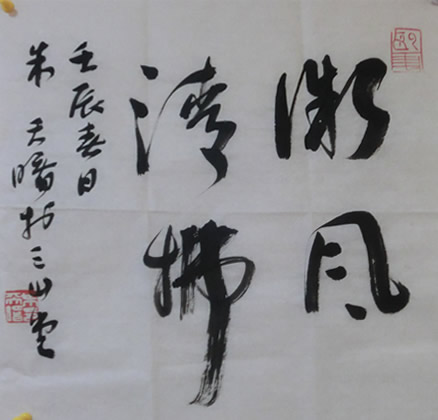 微風
清拂
壬辰春日
朱天曙於三山堂